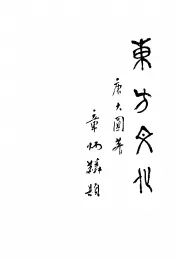 東方文化
唐大圓著
章炳麟題